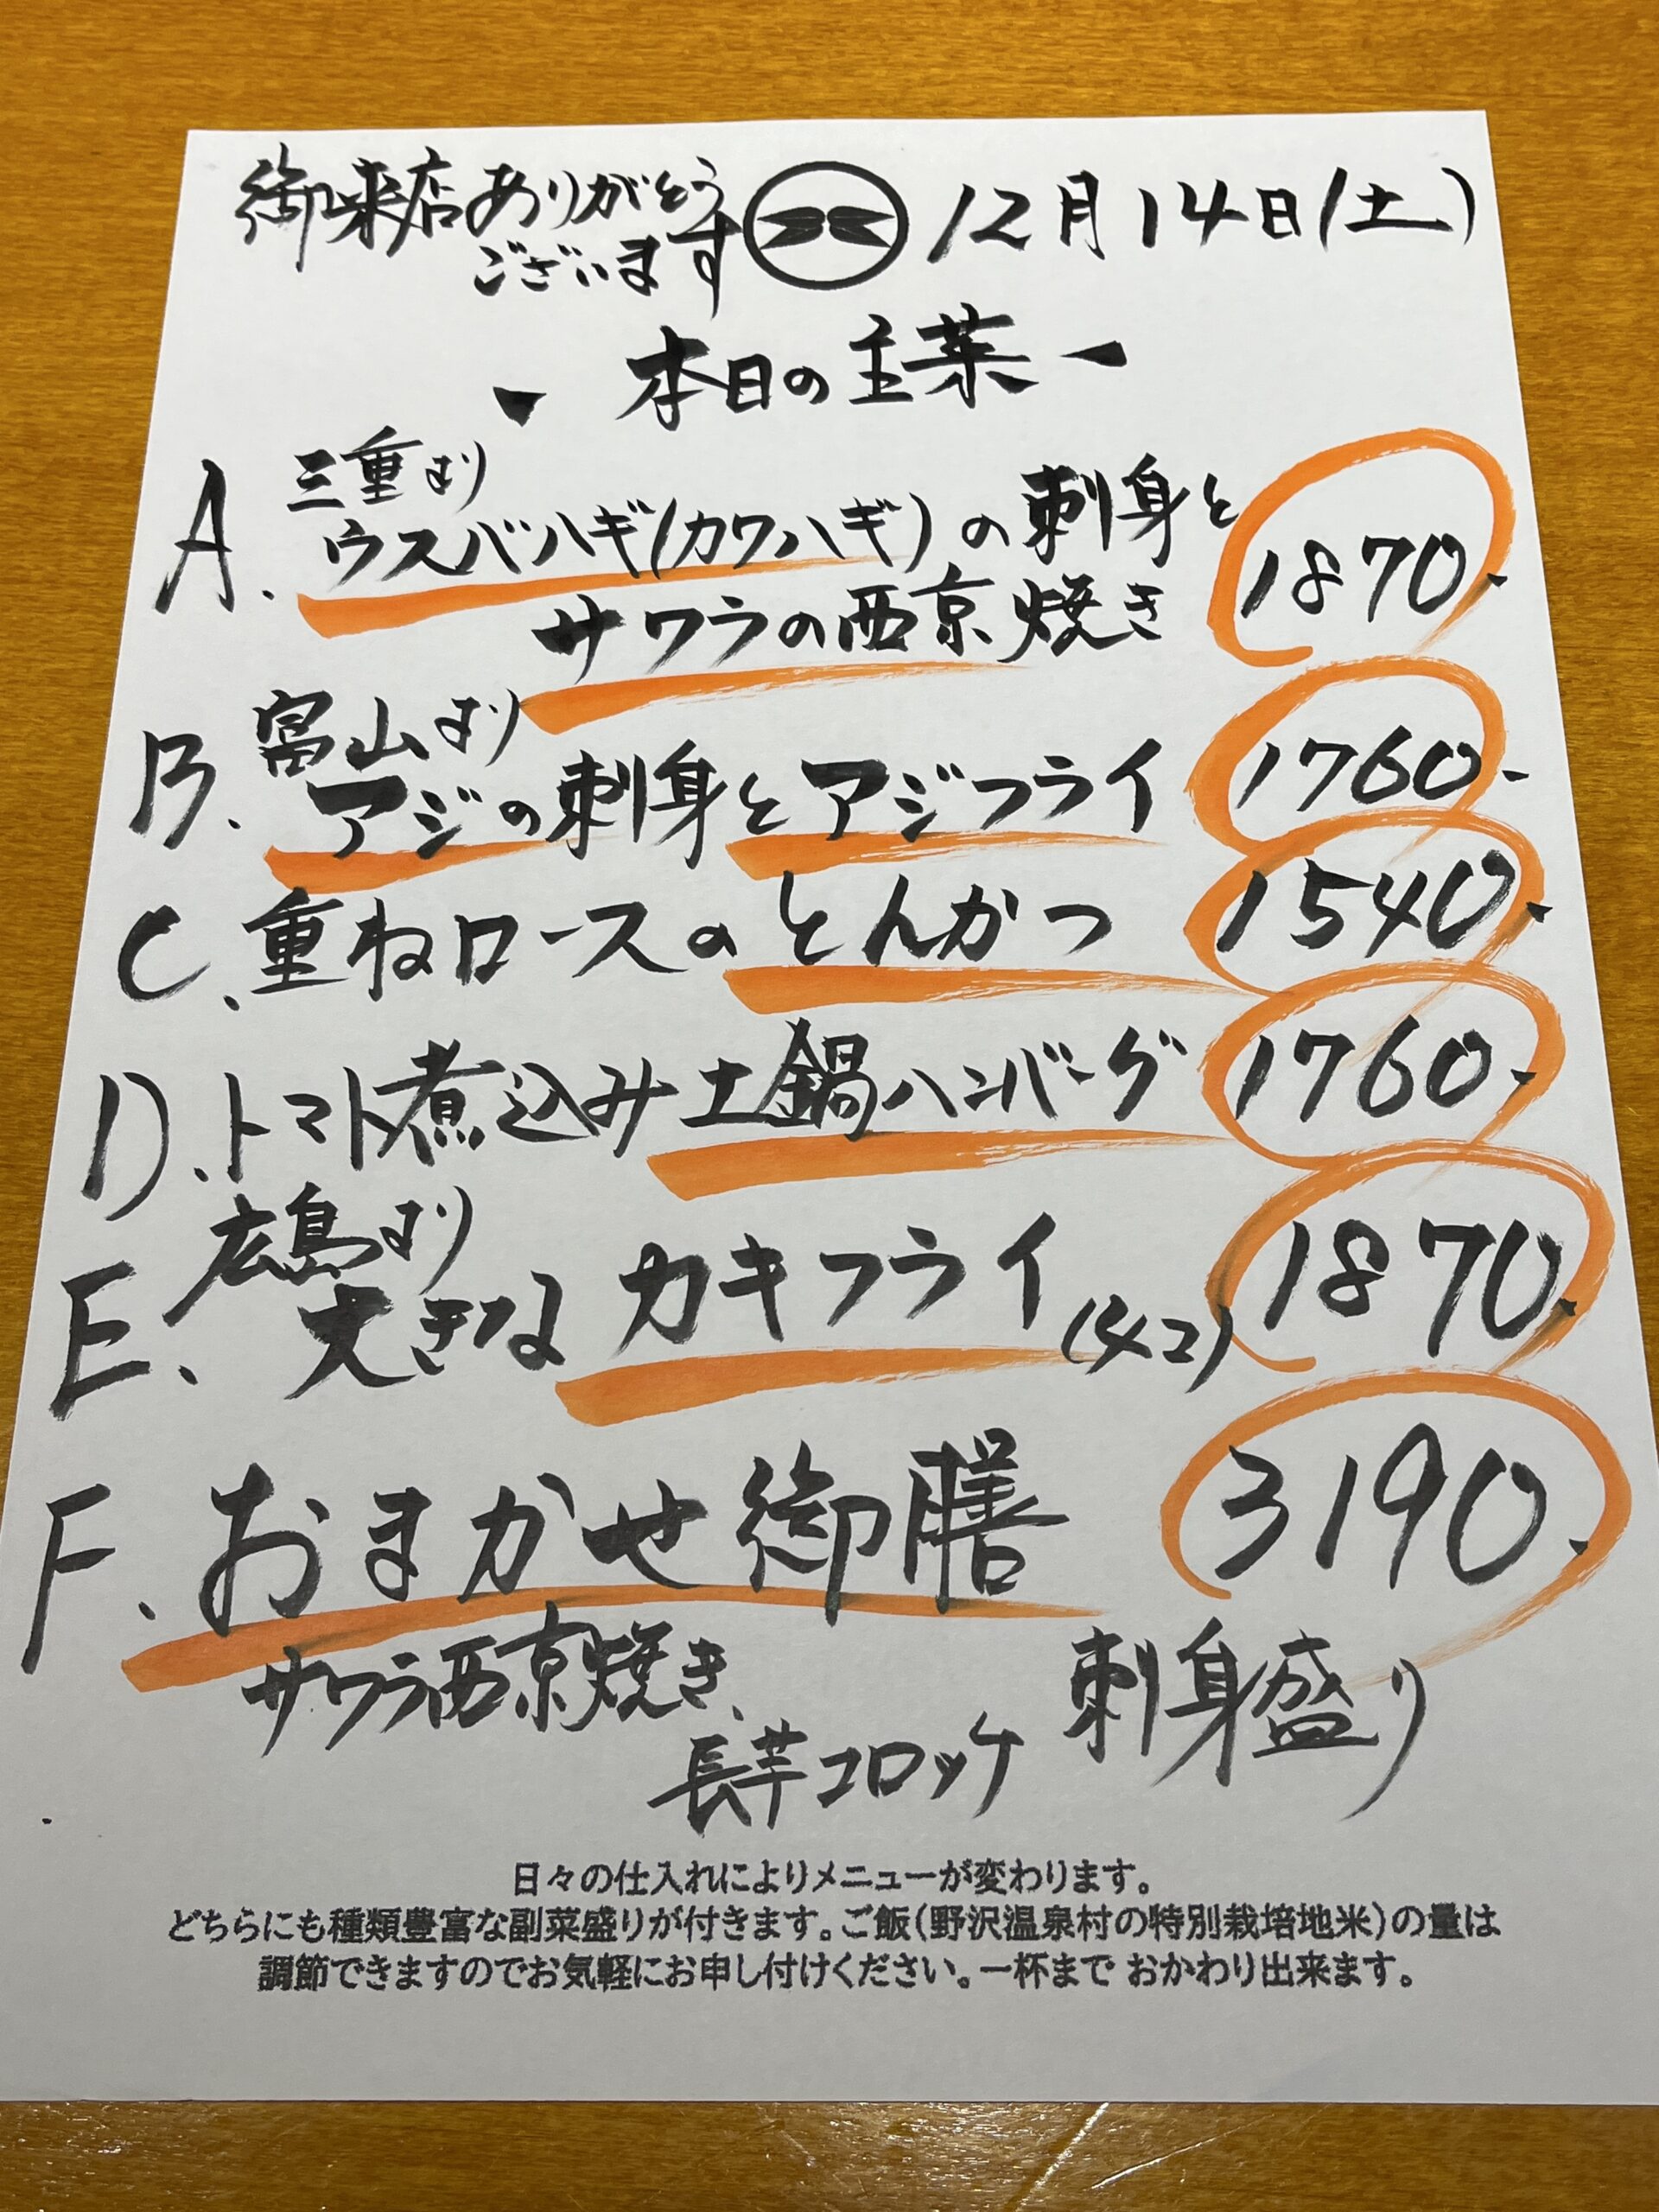 御来店ありがとう
ございます
12月14日(土)
- 本日の主菜 -
A. 三重より
ウスバハギ(カワハギ)の刺身と
サワラの西京焼き 1870-
B. 富山より
アジの刺身とアジフライ 1760-
C. 重ねロースのとんかつ 1540-
D. トマト煮込み土鍋ハンバーグ 1760-
E. 広島より
大きなカキフライ(4コ) 1870.
F. おまかせ御膳 3190.
サワラ西京焼き、 刺身盛り
長芋コロッケ
日々の仕入れによりメニューが変わります。
どちらにも種類豊富な副菜盛りが付きます。ご飯(野沢温泉村の特別栽培地米)の量は
調節できますのでお気軽にお申し付けください。一杯まで おかわり出来ます。